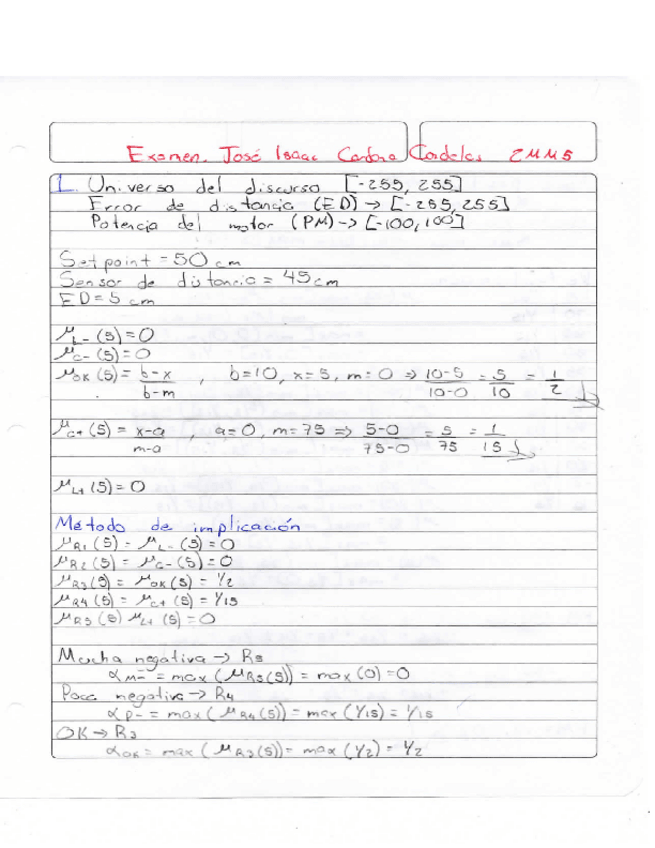 Examen. José Isaac Cardona Cordeles 2MM5
1. Universo del discurso [-255, 255]
Error de distancia (ED) → [-255, 255]
Potencia del motor (PM) → [-100, 100]
Setpoint = 50 cm
Sensor de distancia = 45 cm
ED = 5 cm
μL-(5) = 0
μC-(5) = 0
μOK(5) = b-x / b-m , b=10, x=5, m=0 ⇒ 10-5 / 10-0 = 5 / 10 = 1 / 2
μC+(5) = x-a / m-a , a=0, m=75 ⇒ 5-0 / 75-0 = 5 / 75 = 1 / 15
μL+(5) = 0
Método de implicación
μR1(5) = μL-(5) = 0
μR2(5) = μC-(5) = 0
μR3(5) = μOK(5) = 1/2
μR4(5) = μC+(5) = 1/15
μR5(5) μL+(5) = 0
Mucha negativa → R5
αM- = max(μR5(5)) = max(0) = 0
Poca negativa → R4
αP- = max(μR4(5)) = max(1/15) = 1/15
OK → R3
αOK = max(μR3(5)) = max(1/2) = 1/2